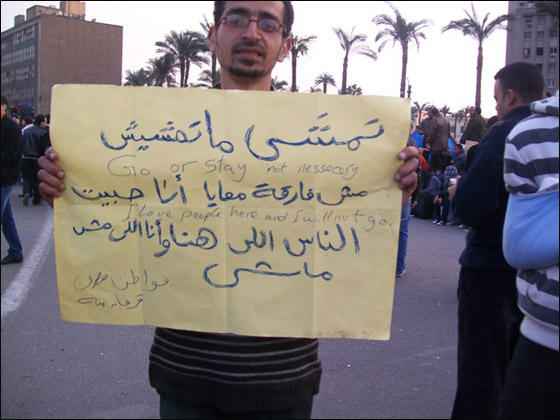 تمشى ماتمشيش
Go or stay not nessecery
مش فارقة معايا أنا حبيت
I love people here and I will not go.
الناس اللى هنا وأنا اللى مش
ماشى
مواطن مصرى
قرفان منه